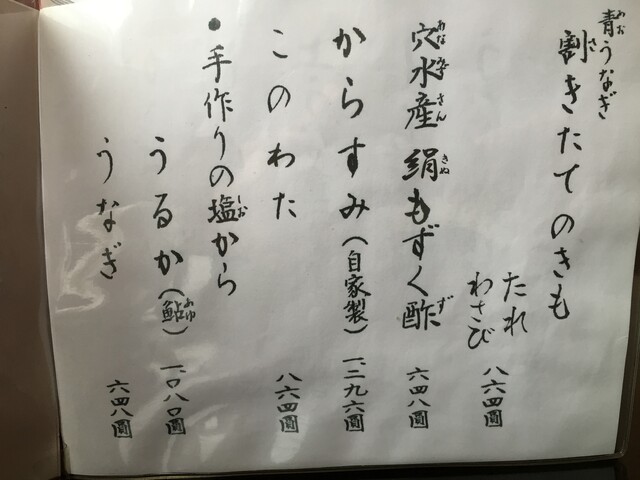 青うなぎ
割きたてのきも
たれ
わさび 八六四圓
穴水産 絹もずく酢 六四八圓
からすみ（自家製） 一、二九六圓
このわた 八六四圓
●手作りの塩から
うるか（鮎） 一、〇八〇圓
うなぎ 六四八圓